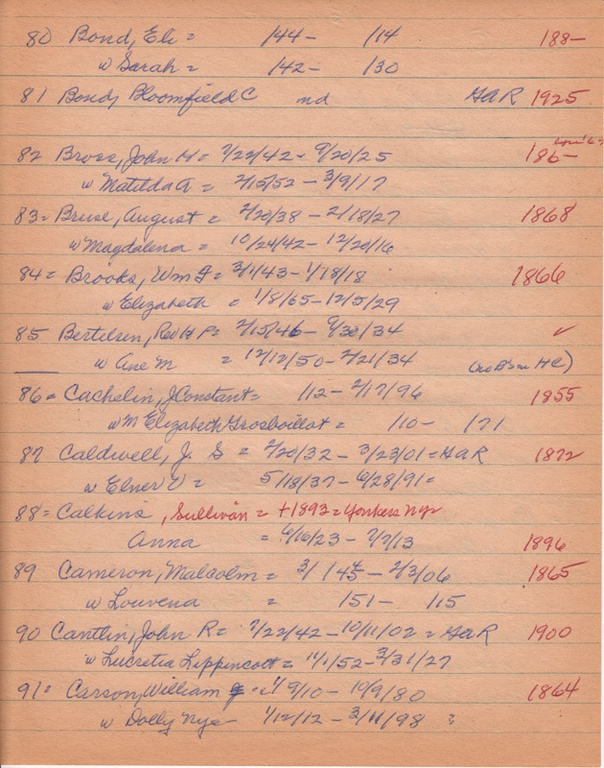 80 Bond, Eli = /44 - /14 188-
w Sarah = /42 - /30
81 Bond, Bloomfield C nd GAR 1925
82 Bross, John H = 7/22/42 - 9/20/25 186-
w Matilda A = 2/15/52 - 3/9/17
83 = Bruse, August = 2/20/38 - 2/18/27 1868
w Magdalena = 10/24/42 - 12/20/16
84 = Brooks, Wm F = 3/1/43 - 1/18/18 1866
w Elizabeth = 1/8/65 - 12/5/29
85 Bertelsen, Rev H P = 2/15/46 - 9/30/34 ✓
w Ane M = 12/12/50 - 2/21/34 (no B's in HC)
86 = Cachelin, J Constant = /12 - 2/17/96 1855
w M Elizabeth Grosboillot = /10 - /71
87 Caldwell, J. S = 2/20/32 - 3/23/01 = GAR 1872
w Elner V = 5/18/37 - 6/28/91 =
88 = Calkins, Sullivan = +1893 = Yonkers NY
Anna = 6/16/23 - 7/7/13 1896
89 Cameron, Malcolm = 3/ /45 - 2/3/06 1865
w Louvena = /51 - /15
90 Cantlin, John R = 7/22/42 - 10/11/02 = GAR 1900
w Lucretia Lippincott = 11/1/52 - 3/31/27
91 = Carson, William 9/10 - 10/9/80 1864
w Dolly Nye - 1/12/12 - 3/11/98 ?